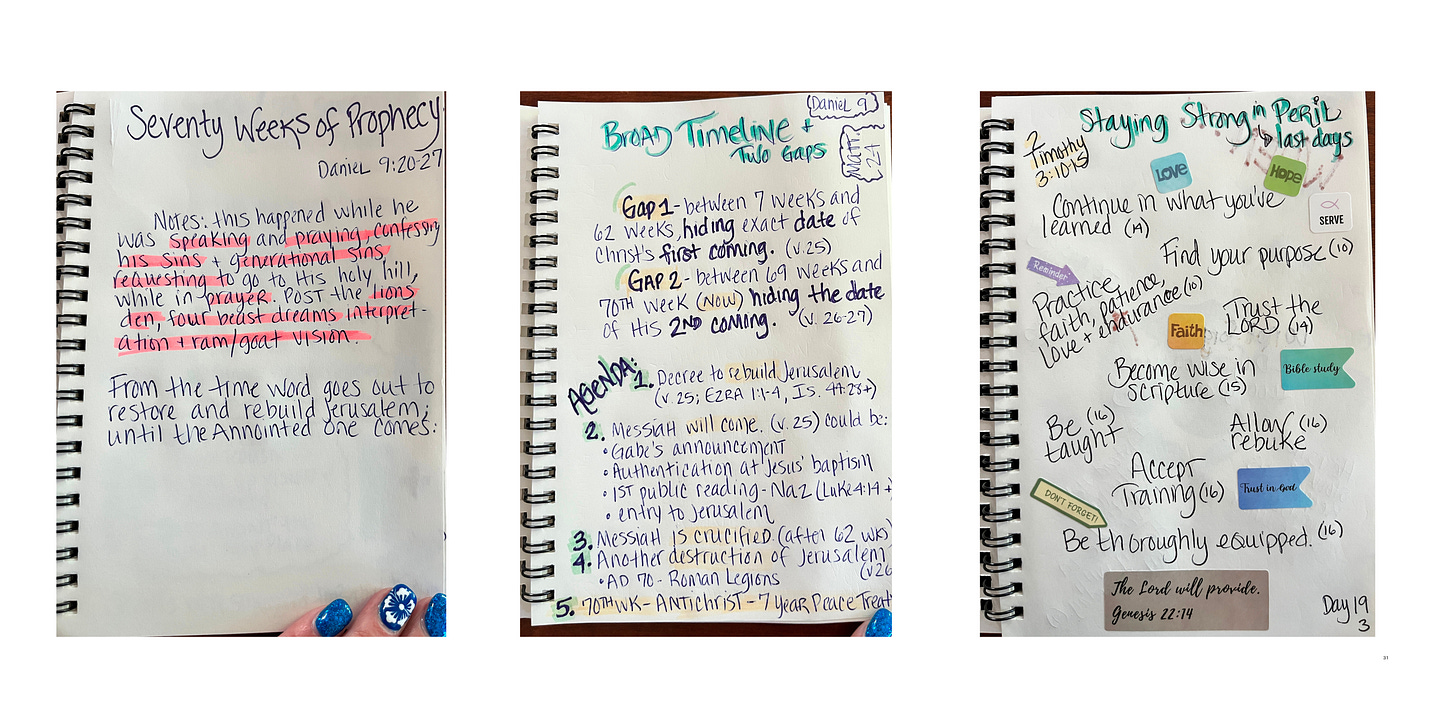 Seventy Weeks of Prophecy
Daniel 9:20-27
Notes: this happened while he
was speaking and praying, confessing
his sins + generational sins
requesting to go to His holy hill,
while in prayer. Post the lions
den, four beast dreams interpret-
ation + ram/goat vision.
From the time word goes out to
restore and rebuild Jerusalem,
until the Annointed one comes:
Daniel 9
Matt. 24
Broad Timeline +
Two Gaps
Gap 1 - between 7 weeks and
62 weeks, hiding exact date of
Christ's first coming. (v.25)
Gap 2 - between 69 weeks and
70TH week (NOW) hiding the date
of His 2ND coming. (v. 26-27)
AGENDA:
1. Decree to rebuild Jerusalem
(v. 25; EZRA 1:1-4, Is. 44:28+)
2. Messiah will come. (v. 25) could be:
• Gabe's announcement
• Authentication at Jesus' baptism
• 1ST public reading - Naz (Luke 4:14 +)
• entry to Jerusalem
3. Messiah is crucified (after 62 wks)
4. Another destruction of Jerusalem
• AD 70 - Roman Legions (v26
5. 70TH WK - ANTichrist - 7 year Peace Treat
Staying Strong in Peril
↳ last days
2
Timothy
3:10-15
LOVE
HOPE
SERVE
Continue in what you've
learned (14)
Find your purpose (10)
Reminder
Practice
faith, patience,
love + endurance (10)
Faith
Trust the
LORD (14)
Become wise in
scripture (15)
Bible study
Be (16)
taught
Allow (16)
rebuke
Accept
Training (16)
Trust in God
DON'T FORGET!
Be thoroughly equipped. (16)
The Lord will provide.
Genesis 22:14
Day 19
3
51